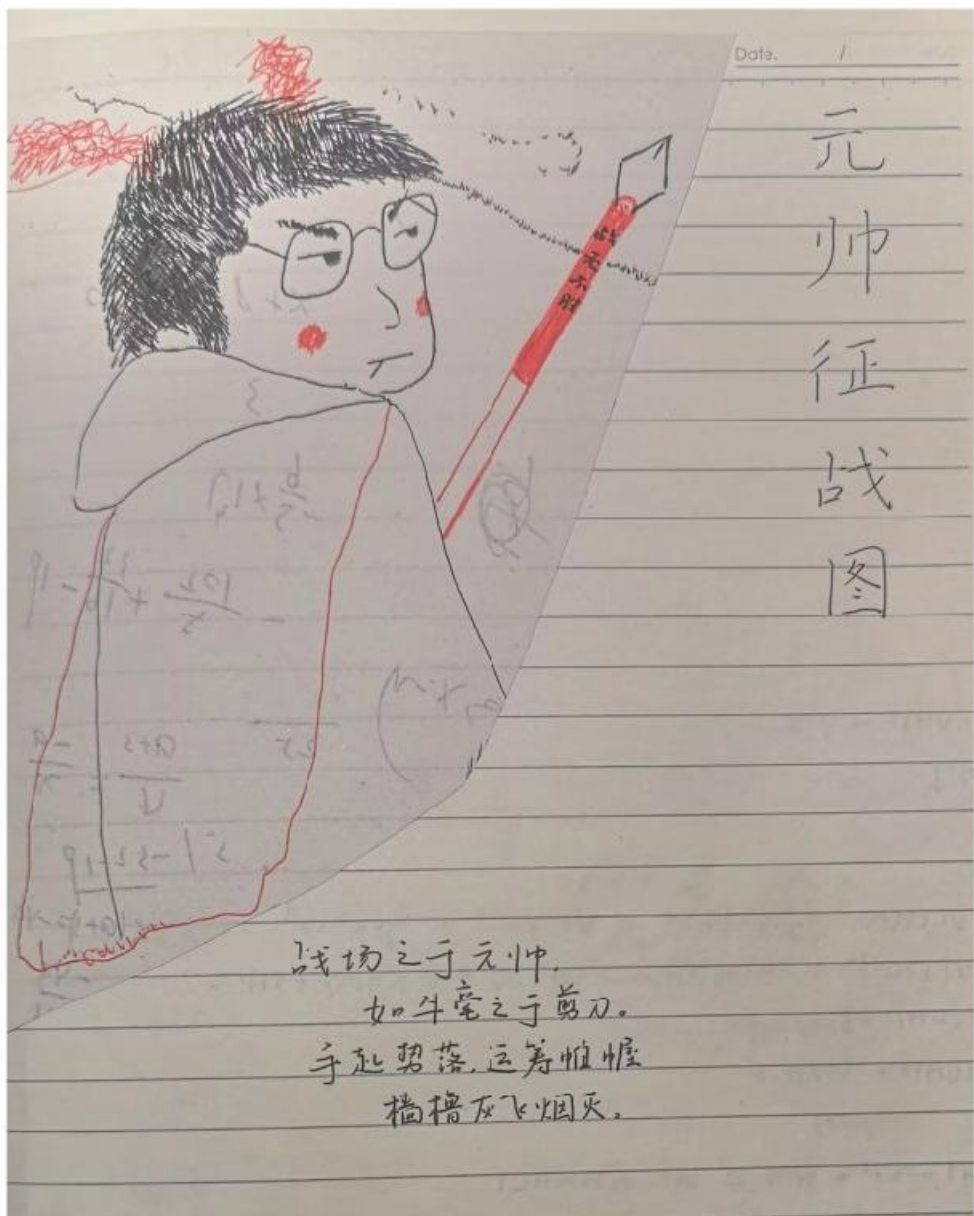 Date. /
元帅征战图
战无不胜
战场之于元帅,
如牛毫之于剪刀。
手起势落,运筹帷幄
樯橹灰飞烟灭。